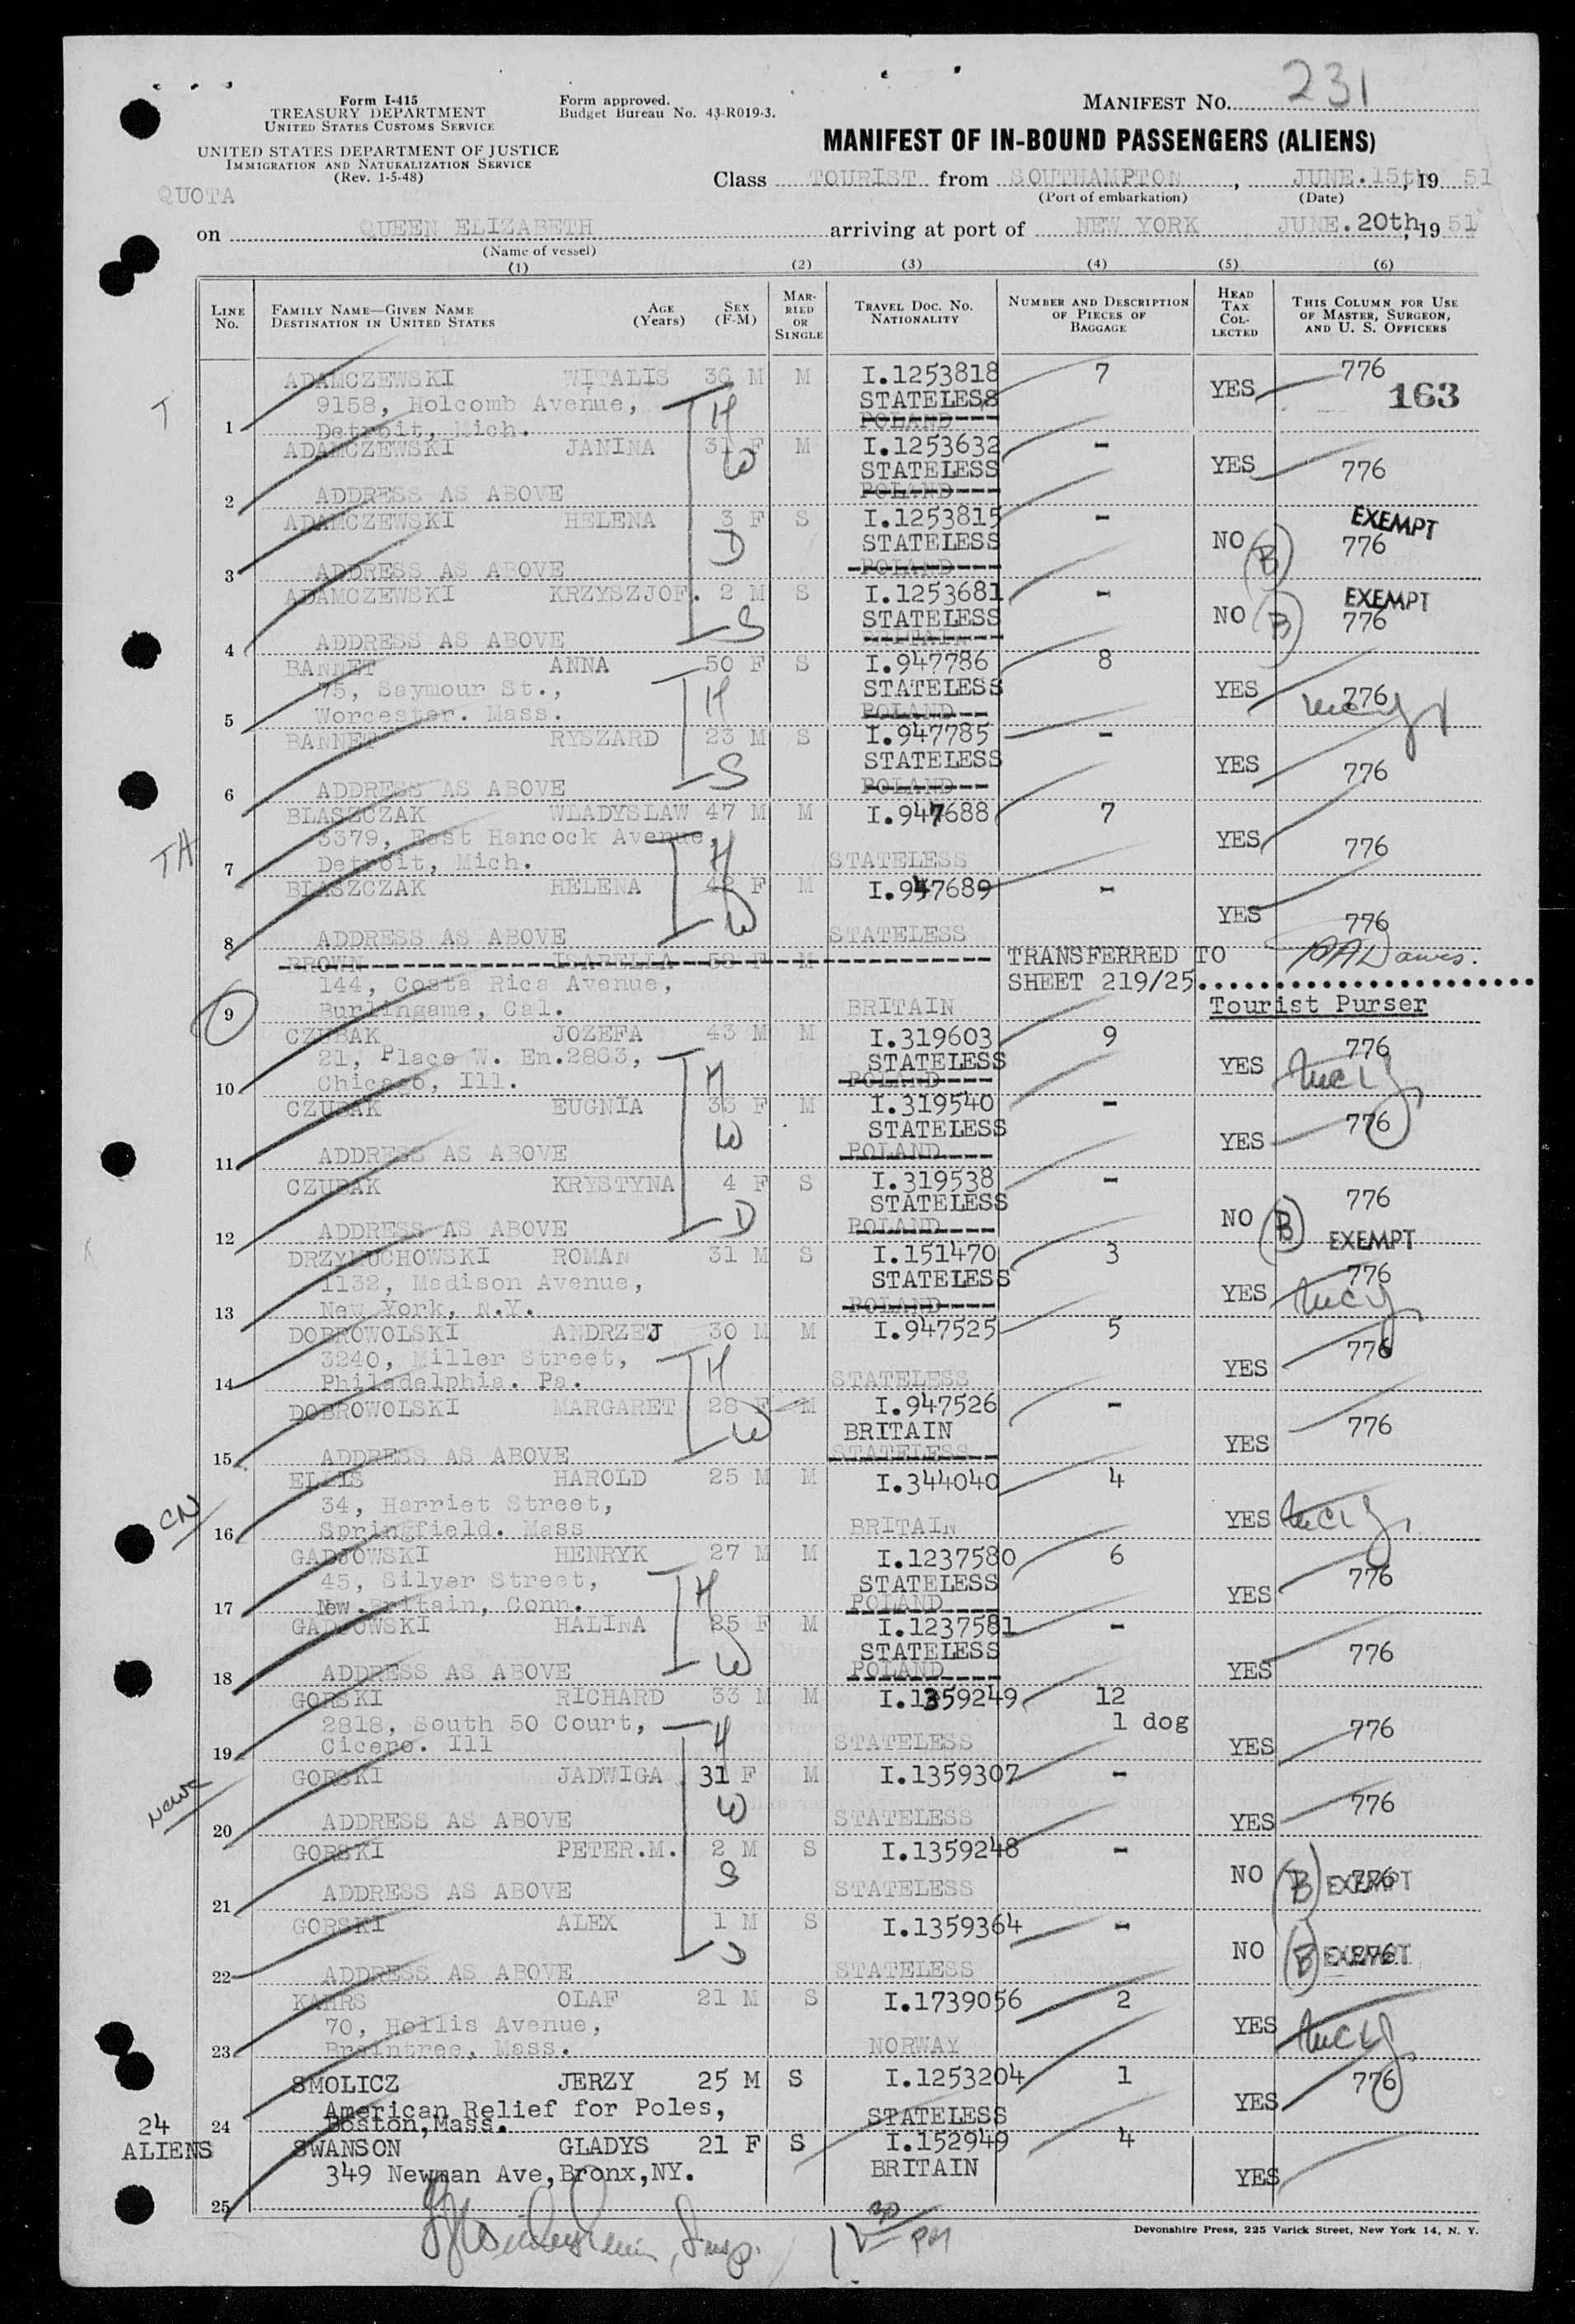 231
Form I-415
TREASURY DEPARTMENT
UNITED STATES CUSTOMS SERVICE
UNITED STATES DEPARTMENT OF JUSTICE
IMMIGRATION AND NATURALIZATION SERVICE
(Rev. 1-5-48)
Form approved.
Budget Bureau No. 43-R019-3.
MANIFEST NO.
MANIFEST OF IN-BOUND PASSENGERS (ALIENS)
QUOTA
Class TOURIST from SOUTHAMPTON, JUNE.15th, 19 51
(Port of embarkation) (Date)
on QUEEN ELIZABETH arriving at port of NEW YORK JUNE.20th, 19 51
(Name of vessel)
(1) (2) (3) (4) (5) (6)
LINE NO. FAMILY NAME—GIVEN NAME DESTINATION IN UNITED STATES AGE (Years) SEX (F-M) MARRIED OR SINGLE TRAVEL DOC. NO. NATIONALITY NUMBER AND DESCRIPTION OF PIECES OF BAGGAGE HEAD TAX COLLECTED THIS COLUMN FOR USE OF MASTER, SURGEON, AND U. S. OFFICERS
ADAMCZEWSKI WITALIS 36 M M I.1253818 7 YES 776
T 9158, Holcomb Avenue, H STATELESS 163
1 Detroit, Mich. POLAND
ADAMCZEWSKI JANINA 31 F M I.1253632 - YES 776
W STATELESS
2 ADDRESS AS ABOVE POLAND
ADAMCZEWSKI HELENA 3 F S I.1253815 - NO EXEMPT
D STATELESS B 776
3 ADDRESS AS ABOVE POLAND
ADAMCZEWSKI KRZYSZJOF. 2 M S I.1253681 - NO EXEMPT
S STATELESS B 776
4 ADDRESS AS ABOVE BRITAIN
BANNET ANNA 50 F S I.947786 8 YES 776
75, Saymour St., H STATELESS
5 Worcester. Mass. POLAND
BANNET RYSZARD 23 M S I.947785 - YES 776
S STATELESS
6 ADDRESS AS ABOVE POLAND
BLASZCZAK WLADYSLAW 47 M M I.947688 7 YES 776
TH 3379, East Hancock Avenue, H
7 Detroit, Mich. STATELESS
BLASZCZAK HELENA 42 F M I.947689 - YES 776
W
8 ADDRESS AS ABOVE STATELESS
BROWN ISABELLA 58 F M TRANSFERRED TO
144, Costa Rica Avenue, SHEET 219/25
9 Burlingame, Cal. BRITAIN Tourist Purser
CZUBAK JOZEFA 43 M M I.319603 9 YES 776
21, Place W. En.2863, H STATELESS
10 Chicago, Ill. POLAND
CZUBAK EUGNIA 33 F M I.319540 - YES 776
W STATELESS
11 ADDRESS AS ABOVE POLAND
CZUBAK KRYSTYNA 4 F S I.319538 - NO 776
D STATELESS B EXEMPT
12 ADDRESS AS ABOVE POLAND
DRZYMUCHOWSKI ROMAN 31 M S I.151470 3 YES 776
1132, Madison Avenue, STATELESS
13 New York, N.Y. POLAND
DOBROWOLSKI ANDRZEJ 30 M M I.947525 5 YES 776
3240, Miller Street, H
14 Philadelphia. Pa. STATELESS
DOBROWOLSKI MARGARET 28 F M I.947526 - YES 776
W BRITAIN
15 ADDRESS AS ABOVE STATELESS
ELLIS HAROLD 25 M M I.344040 4 YES
CN 34, Harriet Street,
16 Springfield. Mass BRITAIN
GADJOWSKI HENRYK 27 M M I.1237580 6 YES 776
45, Silver Street, H STATELESS
17 New.Britain, Conn. POLAND
GADJOWSKI HALINA 25 F M I.1237581 - YES 776
W STATELESS
18 ADDRESS AS ABOVE POLAND
GORSKI RICHARD 33 M M I.1359249 12 YES 776
2818, South 50 Court, H 1 dog
19 Cicero. Ill STATELESS
GORSKI JADWIGA 31 F M I.1359307 - YES 776
W
20 ADDRESS AS ABOVE STATELESS
GORSKI PETER.M. 2 M S I.1359248 - NO B 776 EXEMPT
S
21 ADDRESS AS ABOVE STATELESS
GORSKI ALEX 1 M S I.1359364 - NO B 776 EXEMPT
22 ADDRESS AS ABOVE STATELESS
KAHRS OLAF 21 M S I.1739056 2 YES
70, Hollis Avenue,
23 Braintree, Mass. NORWAY
SMOLICZ JERZY 25 M S I.1253204 1 YES 776
American Relief for Poles,
24 Boston, Mass. STATELESS
24 ALIENS
SWANSON GLADYS 21 F S I.152949 4 YES
349 Newman Ave, Bronx, NY. BRITAIN
25
12 30 PM
Devonshire Press, 225 Varick Street, New York 14, N. Y.